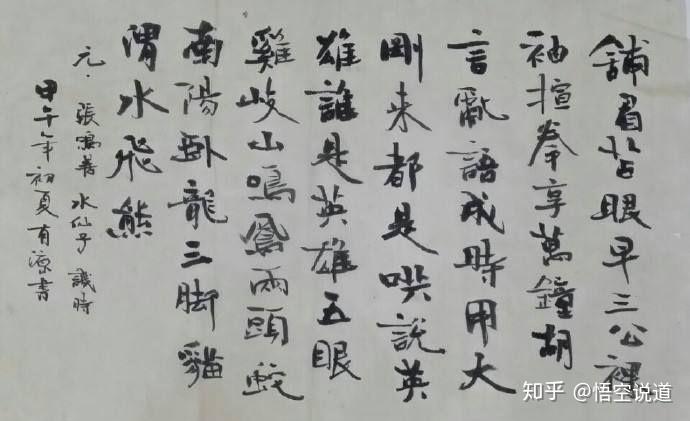 鋪眉苫眼早三公裸
袖揎拳享萬鐘胡
言亂語成時用大
剛来都是哄說英
雄誰是英雄五眼
雞岐山鳴鳳兩頭蛇
南陽卧龍三脚貓
渭水飛熊
元·張鳴善水仙子譏時
甲午年初夏有涼書
知乎 @悟空说道